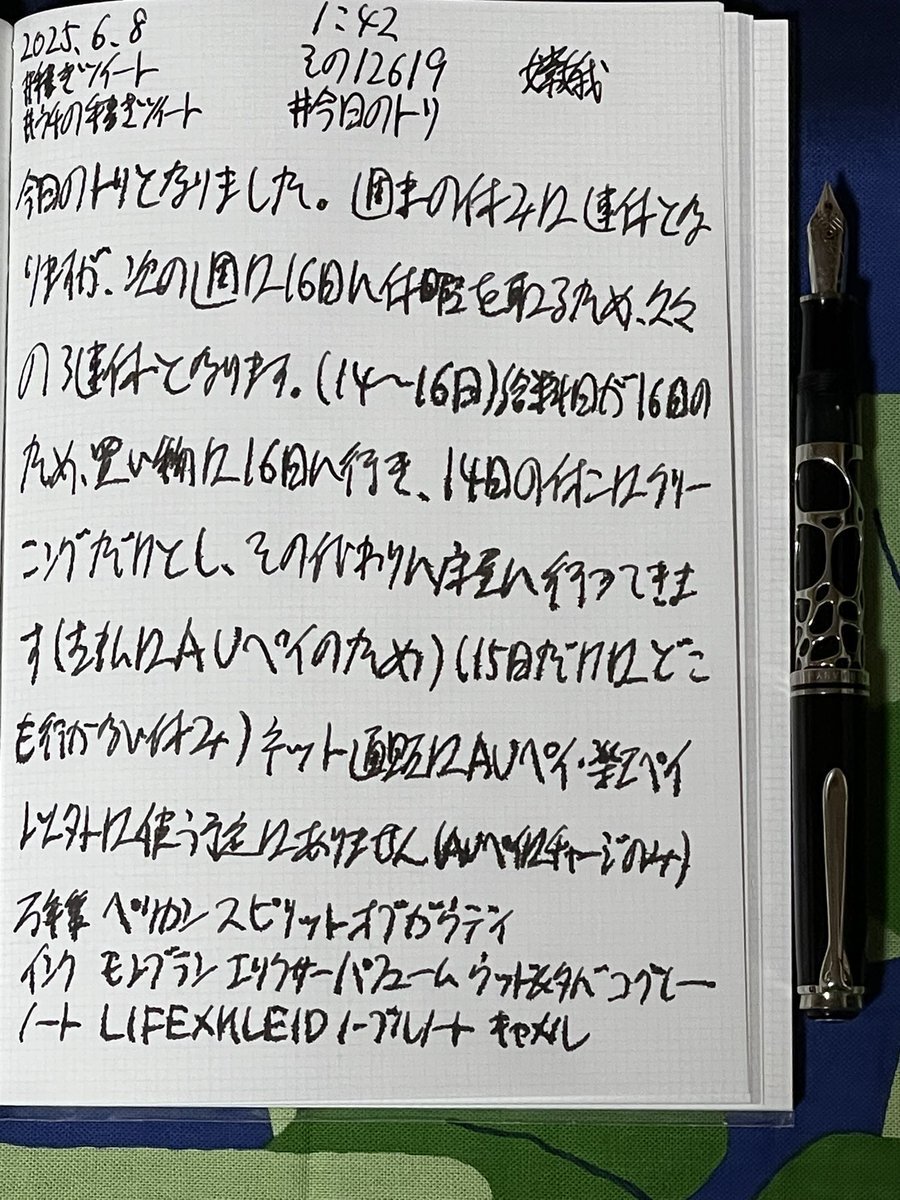 2025.6.8 1:42
#手書きツイート その12619 嫦娥
#うちの手書きツイート #今日のトリ
今日のトリとなりました。週末の休みは連休とな
りますが、次の週は16日に休暇を取るため、久々
の3連休となります。(14〜16日)給料日が16日の
ため、買い物は16日に行き、14日の休みはクリー
ニングだけとし、その代わりに床屋に行ってきま
す(支払はAUペイのため)(15日だけはどこ
も行かない休み)ネット通販はAUペイ・楽天ペイ
以外は使う予定はありません(AUペイはチャージのみ)
万年筆 ペリカン スピリットオブガウディ
インク モンブラン エリクサーパフューム ウッド&タバコグレー
ノート LIFE×KLEID ノーブルノート キャメル